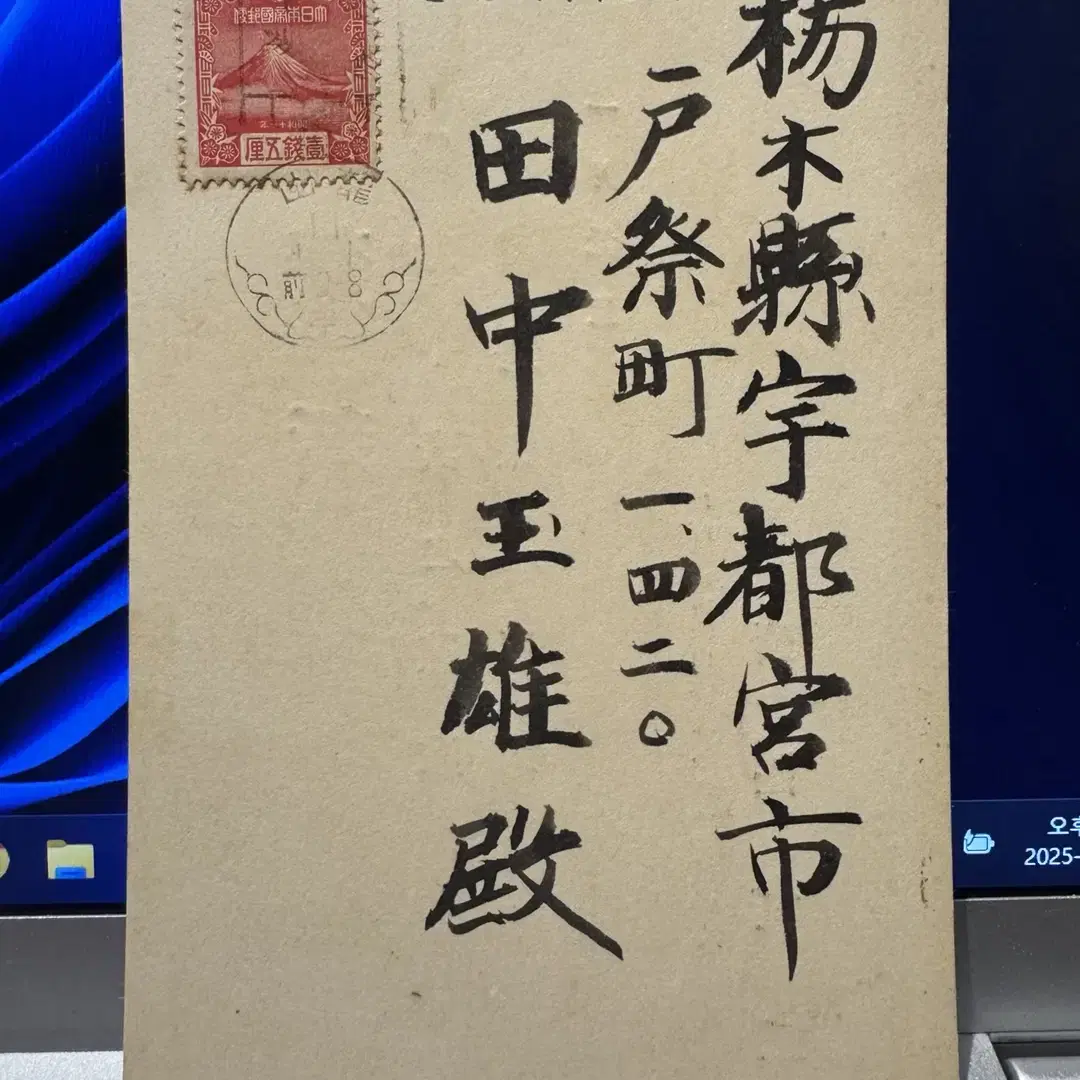 栃木縣宇都宮市
戸祭町一、四二〇
田中玉雄殿
大日本帝國郵便
昭和十一年
壹錢五厘
龍山
前 8
오후
2025-